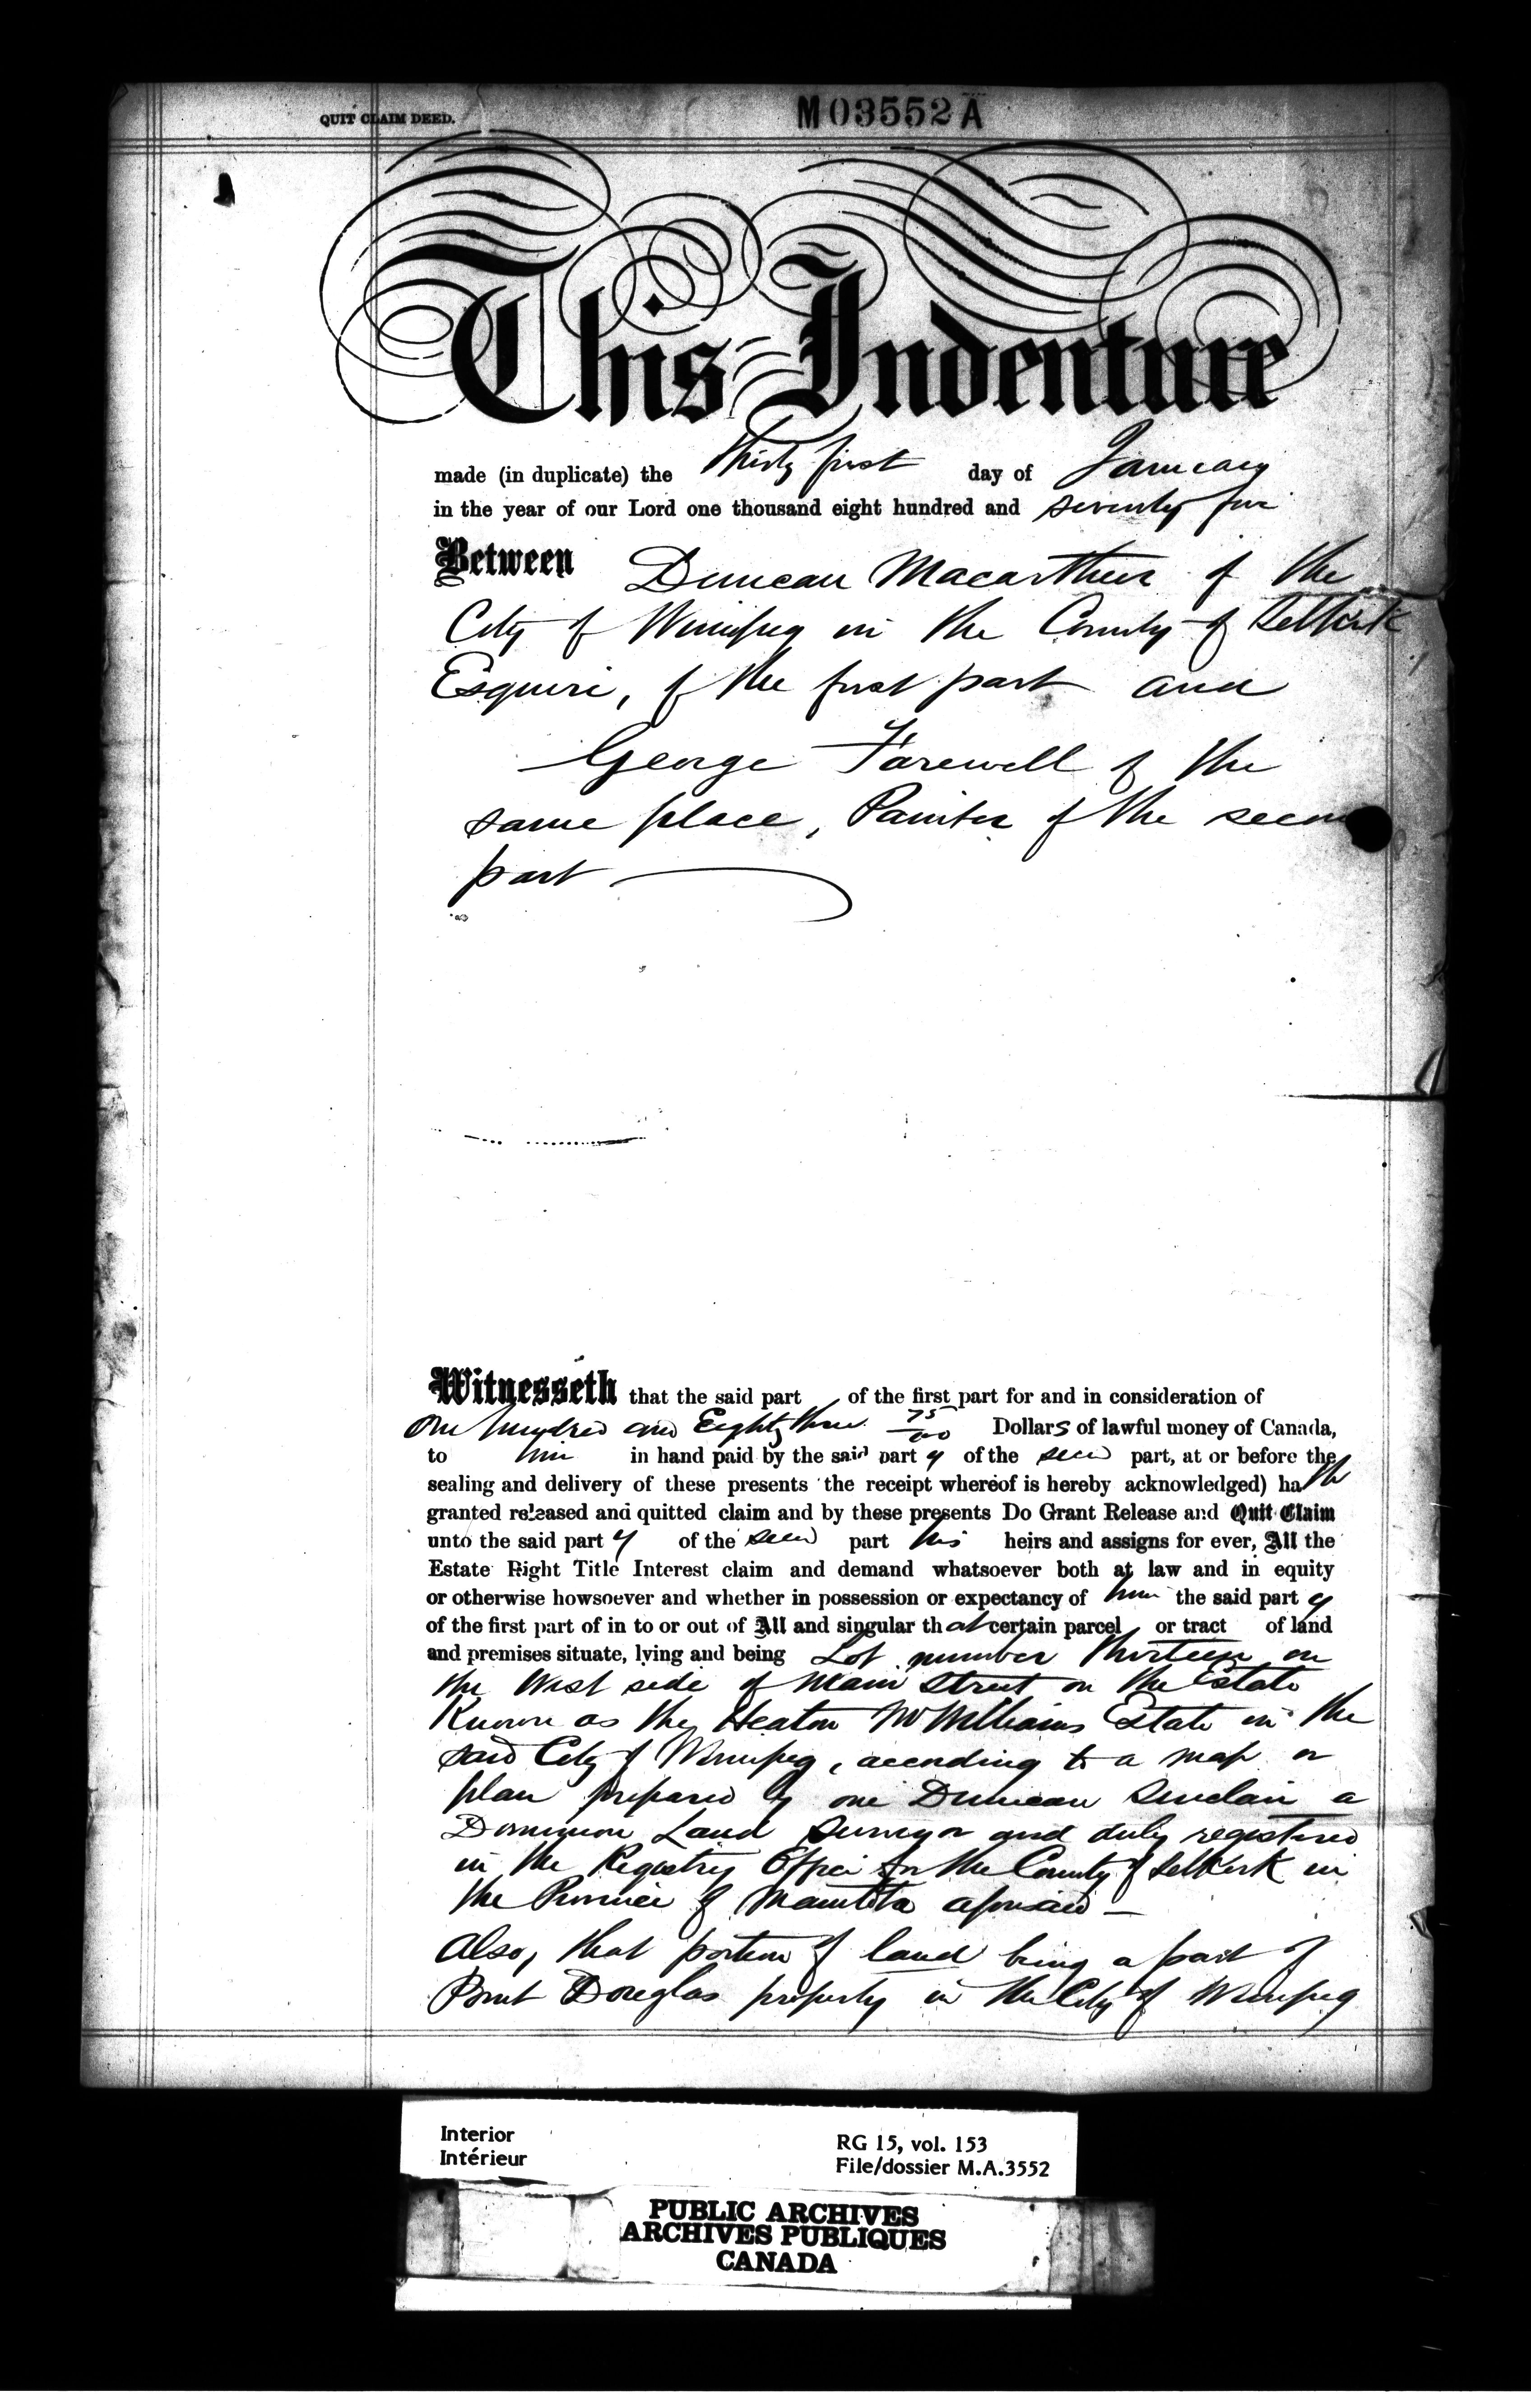 QUIT CLAIM DEED.
M 03552 A
This Indenture
made (in duplicate) the thirty first day of January
in the year of our Lord one thousand eight hundred and seventy five
Between Duncan Macarthur of the
City of Winnipeg in the County of Selkirk
Esquire, of the first part and
George Farewell of the
same place, Painter of the second
part
Witnesseth that the said part of the first part for and in consideration of
One hundred and Eighty three 75/00 Dollars of lawful money of Canada,
to him in hand paid by the said party of the secd part, at or before the
sealing and delivery of these presents the receipt whereof is hereby acknowledged) hath
granted released and quitted claim and by these presents Do Grant Release and Quit Claim
unto the said party of the secd part his heirs and assigns for ever, All the
Estate Right Title Interest claim and demand whatsoever both at law and in equity
or otherwise howsoever and whether in possession or expectancy of him the said party
of the first part of in to or out of All and singular that certain parcel or tract of land
and premises situate, lying and being Lot number thirteen on
the West side of Main Street on the Estate
Known as the Heaton McWilliams Estate in the
said City of Winnipeg, according to a map or
plan prepared by one Duncan Sinclair a
Dominion Land Surveyor and duly registered
in the Registry Office for the County of Selkirk in
the Province of Manitoba aforesaid —
Also, that portion of land being a part of
Point Douglas property in the City of Winnipeg
Interior
Intérieur
RG 15, vol. 153
File/dossier M.A.3552
PUBLIC ARCHIVES
ARCHIVES PUBLIQUES
CANADA